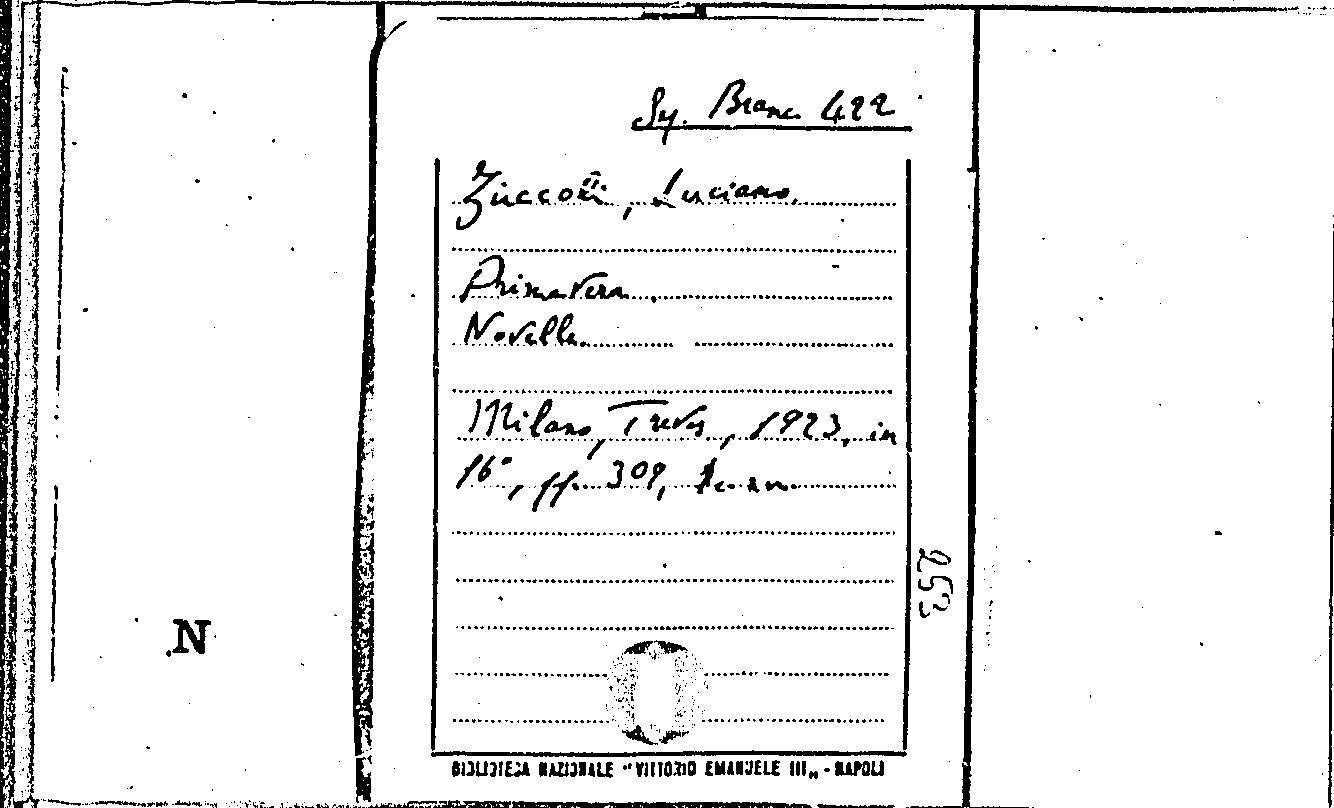 Sy. Branc. 422
Zuccoli, Luciano.
Primavera.
Novelle.
Milano, Treves, 1923, in
16°, pp. 309,
253
N
BIBLIOTECA NAZIONALE "VITTORIO EMANUELE III„ - NAPOLI